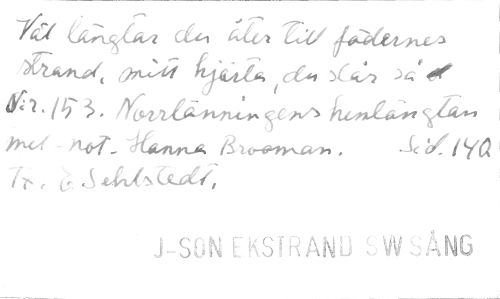 Väl längtar du åter till födernes
strand, mitt hjärta, du slår så
Nr. 153. Norrlänningens hemlängtan
mel - not - Hanna Brooman. Sid. 140
Tx. E. Sehlstedt.
J-SON EKSTRAND SW SÅNG